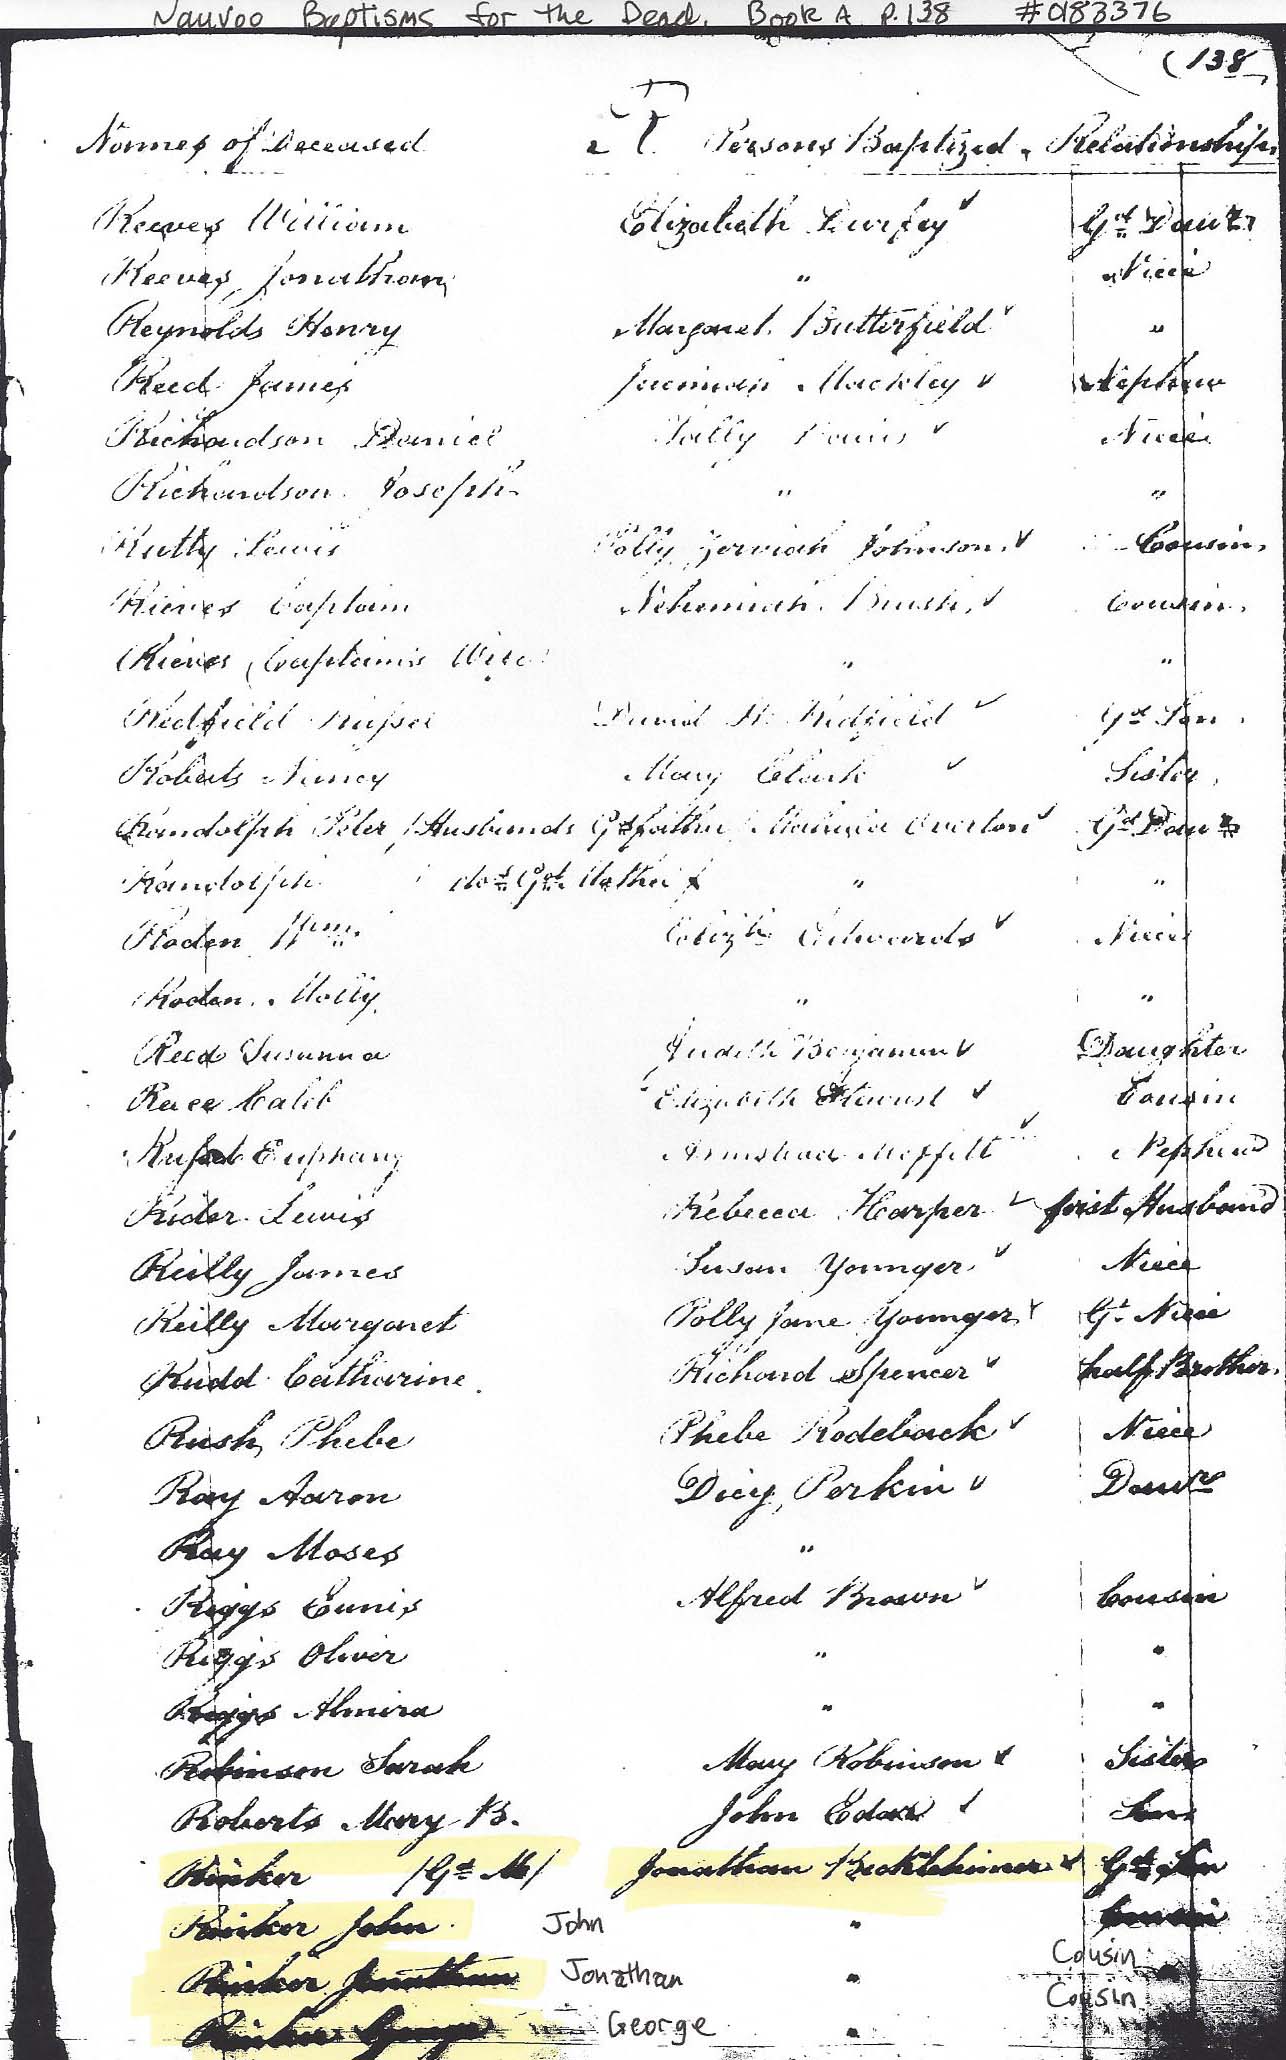 Nauvoo Baptisms for the Dead. Book A p.138 #0183376
(138
Names of Deceased Persons Baptized. Relationship.
Reeves William Elizabeth Durfey Gd Daur
Reeves, Jonathan " Niece
Reynolds Henry Margaret Butterfield "
Reed James Mackley Nephew
Richardson Daniel Sally Niece
Richardson Joseph " "
Lewis Polly Zerviah Johnson. Cousin.
Rieves Captain Nehemiah Brush. Cousin.
Rieves Captain's Wife " "
Redfield David H. Redfield Gd Son.
Roberts Nancy Mary Clark Sister.
Randolph Peter /Husbands Gdfather Mahala Overton Gd Daur
Randolph do Gd Mother " "
Roden Wm. Elizth Edwards Niece
Roden. Molly. " "
Reed Susanna Judith Benjamin Daughter
Race Caleb Elizabeth Stewart Cousin
Euphany Armstead Moffitt Nephew
Rider Lewis Rebecca Harper first Husband
Reilly James Susan Younger. Niece
Reilly Margaret Polly Jane Younger Gt Niece
Rudd Catharine. Richard Spencer half Brother.
Rush, Phebe Phebe Rodeback Niece
Ray Aaron Dicy, Perkin Daur
Ray Moses "
Riggs Eunis Alfred Brown Cousin
Riggs Oliver " "
Riggs Almira " "
Robinson Sarah Mary Robinson Sister
Roberts Mary B. John Son
Rinker /Gd Mo/ Jonathan Heckleheimer Gd Son
Rinker John. John " Cousin
Rinker Jonathan Jonathan " Cousin
Rinker George George " Cousin